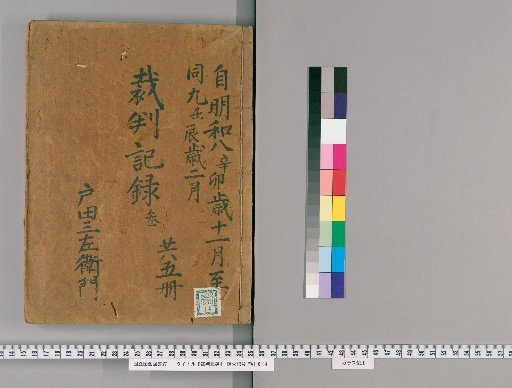 自明和八辛卯歳十一月至
同九壬辰歳二月
裁判記録
参
廿八五册
戸田三左衛門